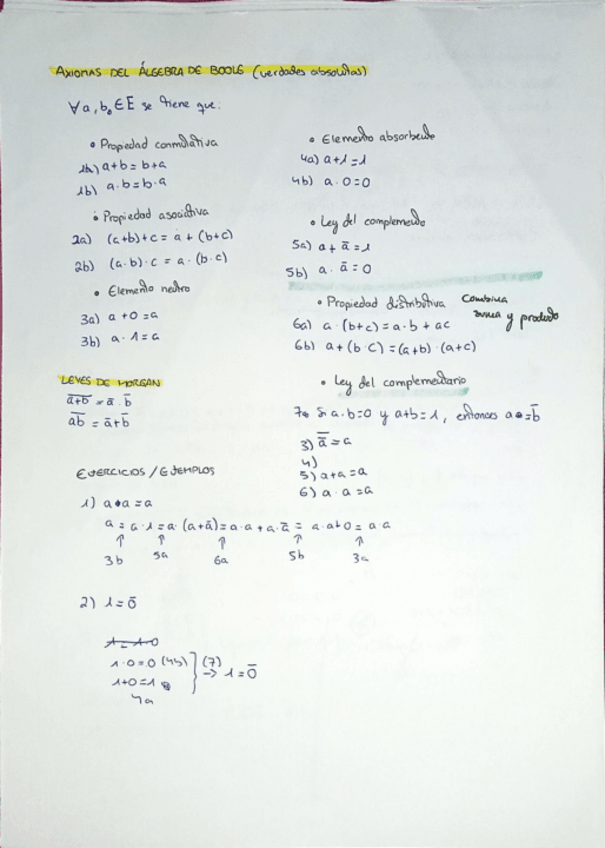 AXIOMAS DEL ÁLGEBRA DE BOOLE (verdades absolutas)
∀ a, b, ∈ E se tiene que:
• Propiedad conmutativa
1a) a+b = b+a
1b) a·b = b·a
• Propiedad asociativa
2a) (a+b)+c = a + (b+c)
2b) (a·b)·c = a·(b·c)
• Elemento neutro
3a) a+0 = a
3b) a·1 = a
• Elemento absorbente
4a) a+1 = 1
4b) a·0 = 0
• Ley del complemento
5a) a + ā = 1
5b) a · ā = 0
• Propiedad distributiva Combina suma y producto
6a) a·(b+c) = a·b + ac
6b) a+(b·c) = (a+b)·(a+c)
• Ley del complementario
7 Si a·b=0 y a+b=1, entonces a = b̄
3) a̿ = a
4)
5) a+a = a
6) a·a = a
LEYES DE MORGAN
\overline{a+b} = ā · b̄
\overline{ab} = ā + b̄
EJERCICIOS / EJEMPLOS
1) a·a = a
a = a·1 = a·(a+ā) = a·a + a·ā = a·a+0 = a·a
↑ ↑ ↑ ↑ ↑
3b 5a 6a 5b 3a
2) 1 = 0̄
1 = 1·0
1·0=0 (4b)
1+0=1
4a
(7) → 1 = 0̄